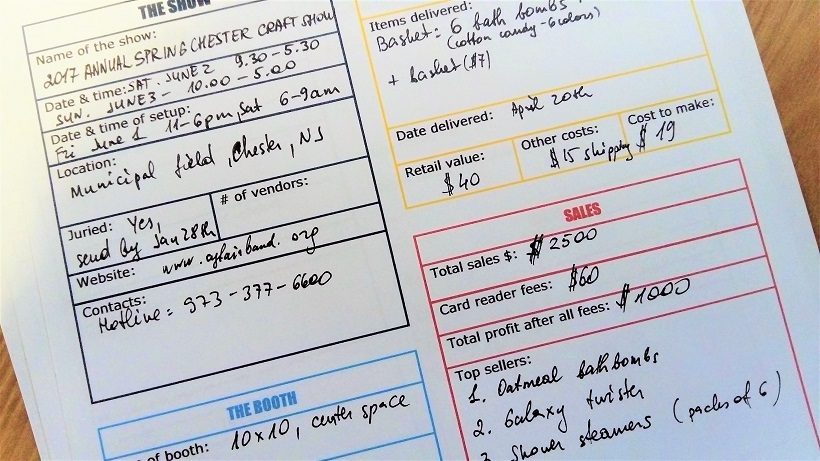 THE SHOW
Name of the show:
2017 ANNUAL SPRING CHESTER CRAFT SHOW
Date & time: SAT. JUNE 2 9.30-5.30
SUN. JUNE 3 - 10.00-5.00
Date & time of setup:
Fri June 1 11-6pm, Sat 6-9am
Location:
Municipal field, Chester, NJ
Juried: Yes,
send by Jan 28th
# of vendors:
Website: www.
.org
Contacts:
Hotline: 973-377-6600
THE BOOTH
of booth: 10x10, center space
Items delivered:
Basket: 6 bath bombs
(cotton candy - 6 colors)
+ basket ($7)
Date delivered: April 20th
Retail value:
$40
Other costs:
$15 shipping
Cost to make:
$19
SALES
Total sales $: $2500
Card reader fees: $60
Total profit after all fees: $1000
Top sellers:
1. Oatmeal bath bombs
2. Galaxy twister
3 Shower steamers (packs of 6)